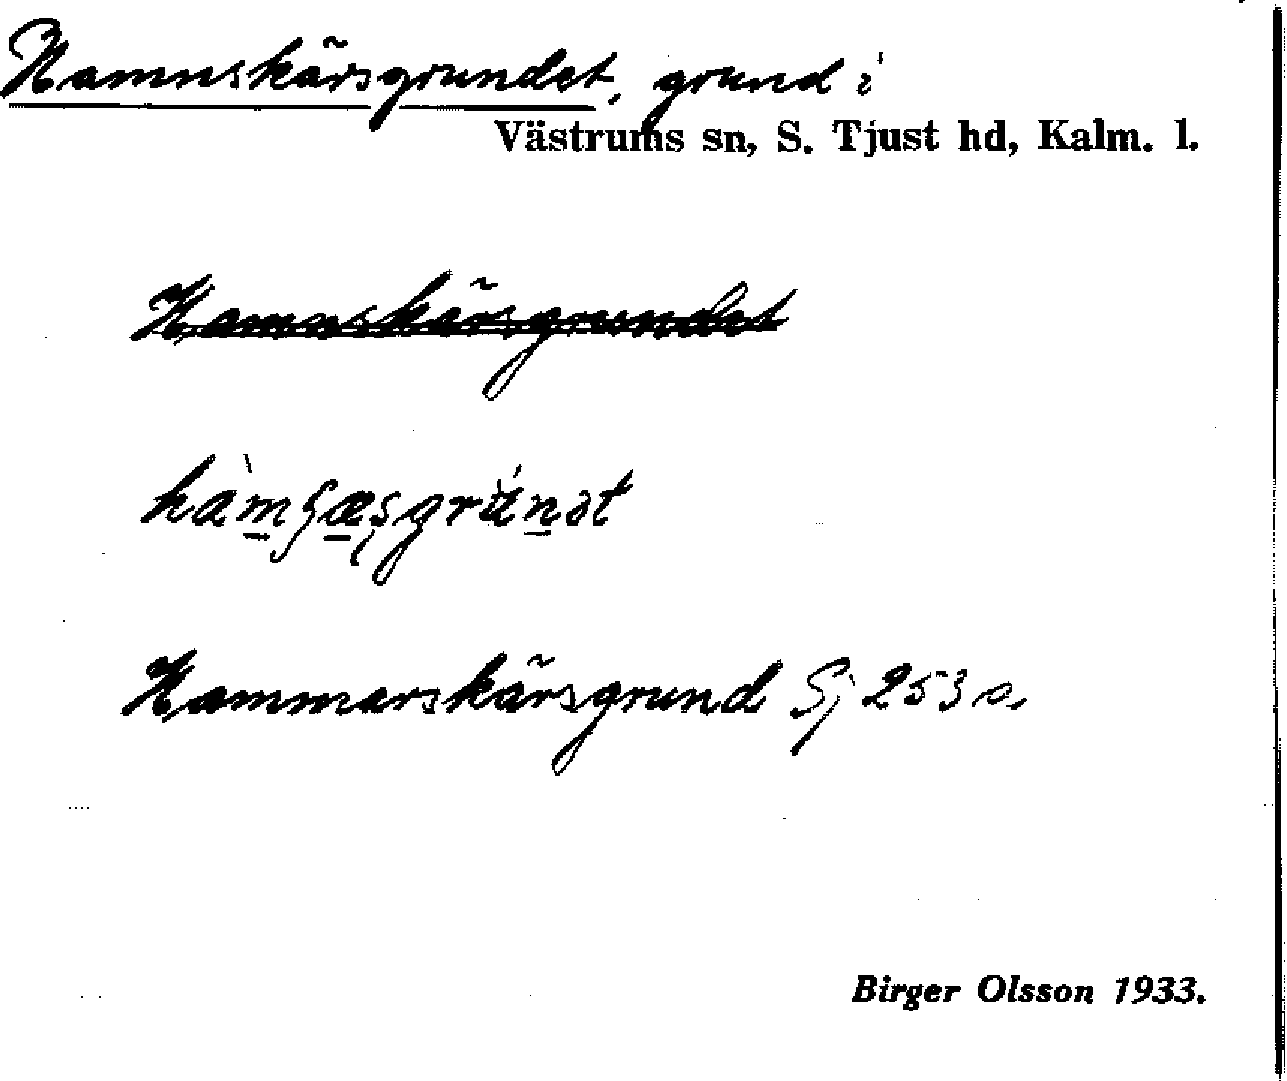 Hamnskärsgrundet, grund i
Västrums sn, S. Tjust hd, Kalm. l.
Hamnskärsgrundet
Hammarskärsgrund Sj 253 a.
Birger Olsson 1933.